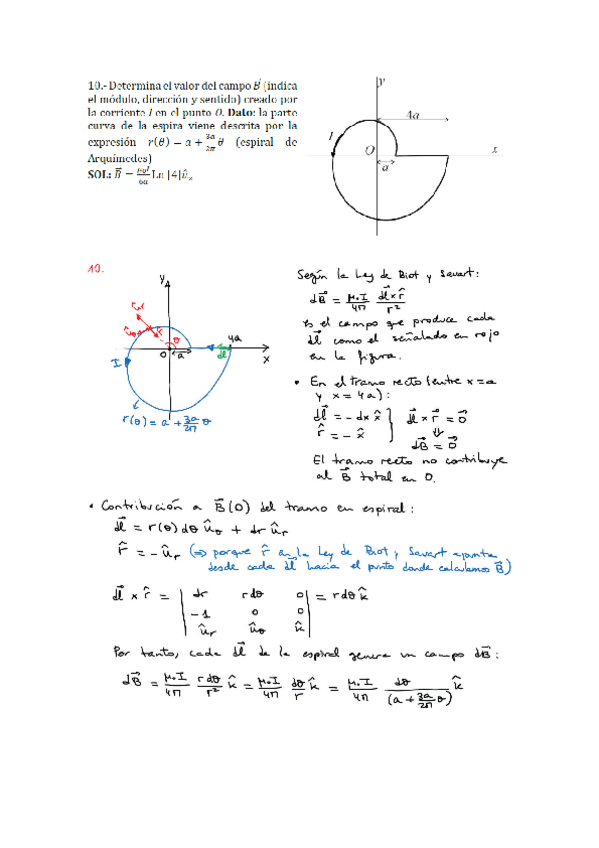 10.- Determina el valor del campo B⃗ (indica
el módulo, dirección y sentido) creado por
la corriente I en el punto O. Dato: la parte
curva de la espira viene descrita por la
expresión r(θ) = a + 3a/2π θ (espiral de
Arquímedes)
SOL: B⃗ = μ₀I/6a Ln|4| û_z
y
4a
I
O
x
a
10.
y
ûr
ûθ
r̂
θ
4a
I
O
a
dl⃗
x
r(θ) = a + 3a/2π θ
Según la Ley de Biot y Savart:
dB⃗ = μ₀I/4π dl⃗×r̂/r²
es el campo que produce cada
dl⃗ como el señalado en rojo
en la figura.
• En el tramo recto (entre x=a
y x=4a):
dl⃗ = -dx x̂
r̂ = -x̂
} dl⃗ × r̂ = 0⃗
⇓
dB⃗ = 0⃗
El tramo recto no contribuye
al B⃗ total en O.
• Contribución a B⃗(O) del tramo en espiral:
dl⃗ = r(θ)dθ ûθ + dr ûr
r̂ = -ûr (⇒ porque r̂ en la Ley de Biot y Savart apunta
desde cada dl⃗ hacia el punto donde calculamos B⃗)
dl⃗ × r̂ = | dr rdθ 0 | = rdθ k̂
-1 0 0
ûr ûθ k̂
Por tanto, cada dl⃗ de la espiral genera un campo dB⃗:
dB⃗ = μ₀I/4π rdθ/r² k̂ = μ₀I/4π dθ/r k̂ = μ₀I/4π dθ/(a + 3a/2π θ) k̂